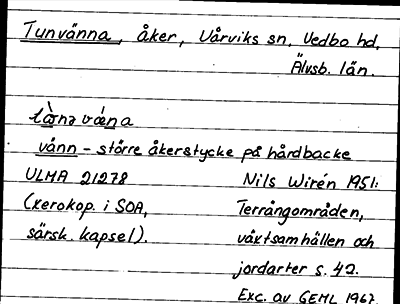 Tunvänna, åker, Vårviks sn, Vedbo hd,
Älvsb. län.
vånn - större åkerstycke på hårdbacke
ULMA 21278 Nils Wirén 1951:
(xerokop. i SOA, Terrängområden,
särsk. kapsel). växtsamhällen och
jordarter s. 42.
Exc. av GEHL 1967.